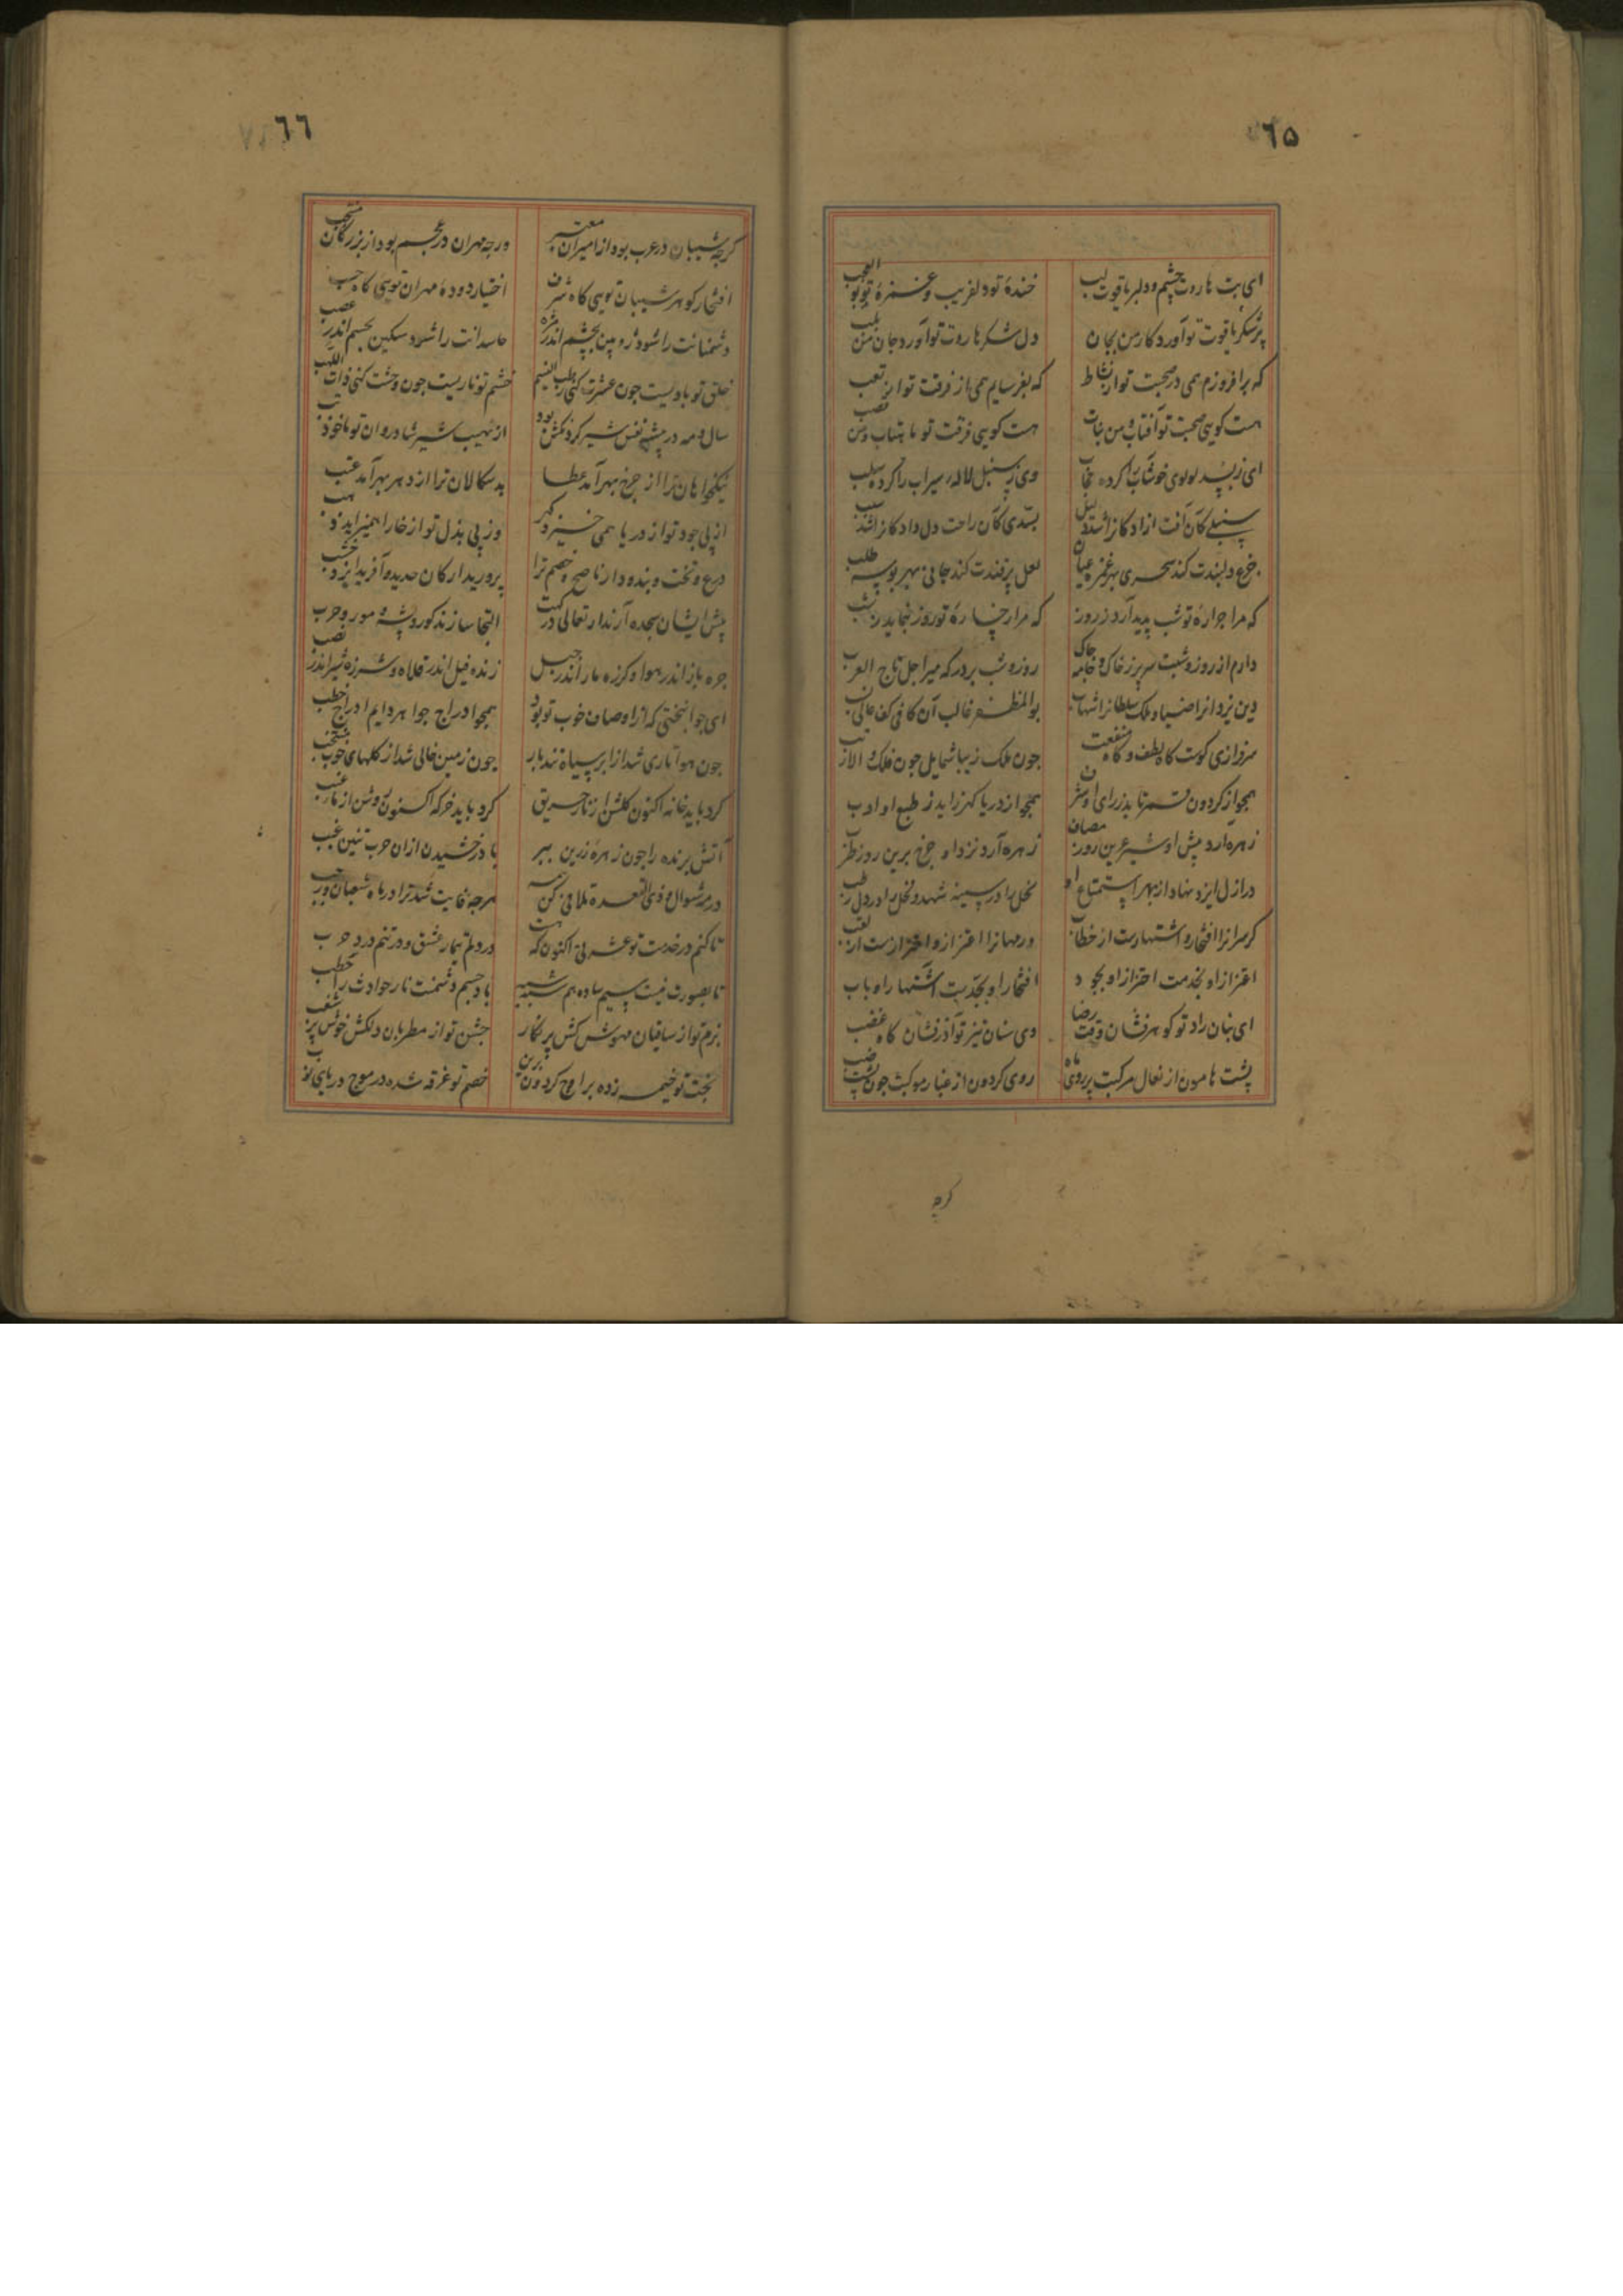 ٦۵
ای بت هاروت چشم و دلبر یاقوت لب خندهٔ تو دلفریب و غمزهٔ تو بوالعجب
پر شکر یاقوت تو آورد کار من بجان دل شکر هاروت تو آورد جان من بلب
که برافروزم همی در صحبت تو از نشاط که بفرسایم همی از فرقت تو از تعب
هست کویی صحبت تو آفتاب و من نبات هست کویی فرقت تو ماهتاب و من قصب
ای زبسد لولوی خوشاب را کرده حجاب وی ز سنبل لالهٔ سیراب را کرده سلب
سنبلی کان آفت ازادکانرا شد دلیل بسدی کان راحت دل دادکانرا شد سبب
جزع دلبندت کند سحری بهر غمزه عیان لعل پرقندت کند جانی بهر بوسه طلب
که مرا جرارهٔ تو شب پدید آرد ز روز که مرا رخسارهٔ تو روز بنماید ز شب
دارم از روز و شبت سر پر ز خاک و جامه چاک روز و شب بر درکه میر اجل تاج العرب
دین یزدانرا ضیا و ملک سلطانرا شهاب بوالمظفر غالب آن کافی کف عالی نسب
سرفرازی کوست کاه لطف و کاه منفعت چون ملک زیبا شمایل چون فلک والا رتب
همچو از کردون قمر تابد ز رای او هنر همچو از دریا کهر زاید ز طبع او ادب
زهره آرد پیش او شیر عرین روز مصاف زهره آرد نزد او چرخ برین روز طرب
در ازل ایزد نهاد از بهر استمتاع او نحل را در سینه شهد و نخل را در دل رطب
کرسرانرا افتخار و اشتهارست از خطاب ور مهانرا اعتزاز و احترازست از لقب
اعتزاز او بخدمت احتراز او بجود افتخار او بجد بست اشتهار او باب
ای بنان راد تو کوهرفشان وقت رضا وی سنان تیز تو آذرفشان کاه غضب
پشت هامون از نعال مرکبت پر روی ماه روی کردون از غبار موکبت چون پشت ضب
کرچه
٦٦
کرچه شیبان در عرب بود از امیران معتبر ورچه مهران در عجم بود از بزرکان منتخب
افتخار کوهر شیبان تویی کاه شرف اختیار دودهٔ مهران تویی کاه حسب
دشمنانت را شود ژوپین بچشم اندر مژه حاسدانت را شود سکین بجسم اندر عصب
خلق تو بادیست چون عشرت کنی رطب النسیم خشم تو ناریست چون وحشت کنی ذات اللهب
سال و مه در بیشه نفس شیر کردنکش بود از نهیب شیر شادروان تو ماخوذ تب
نیکخواهان ترا از چرخ بهر آمد عطا بدسکالان ترا از دهر بهر آمد عتب
از پی جود تو از دریا همی خیزد کهر وز پی بذل تو از خارا همی زاید ذهب
درع و تخت و بنده و دار ناصح و خصم ترا پرورید ارکان حدید و آفرید ایزد خشب
پیش ایشان سجده آرند ار تعالی درکهت التجا سازند کور و پشه و مور و خرب
جره باز اندر هوا و کرزه مار اندر جبل زنده فیل اندر فلاه و شرزه شیر اندر قصب
ای جوانبختی که از اوصاف خوب تو بود همچو ادراج جواهر دایم ادراج خطب
چون هوا تاری شد از ابر سیاه تندبار چون زمین خالی شد از کلهای خوب منتخب
کرد باید خانه اکنون کلشن از نار حریق کرد باید خرکه اکنون روشن از ماء عنب
آتش برنده را چون زهرهٔ زرین ببر با درخشیدن ازان چوب تنین غبب
در مه شوال و ذی القعده تلافی کن همه هرچه فایت شد ترا در ماه شعبان و رجب
تا کنم در خدمت تو عشرتی اکنون که هست در دلم تیمار عشق و در تنم درد جرب
تا بصورت نیست سیم ساده هم شبه شبه باد جسم دشمنت نار حوادث را حطب
بزم تو از ساقیان مهوش کش پر نکار جشن تو از مطربان دلکش خوش پر شغب
بخت تو خیمه زده بر اوج کردون برین خصم تو غرقه شده در موج دریای نوب